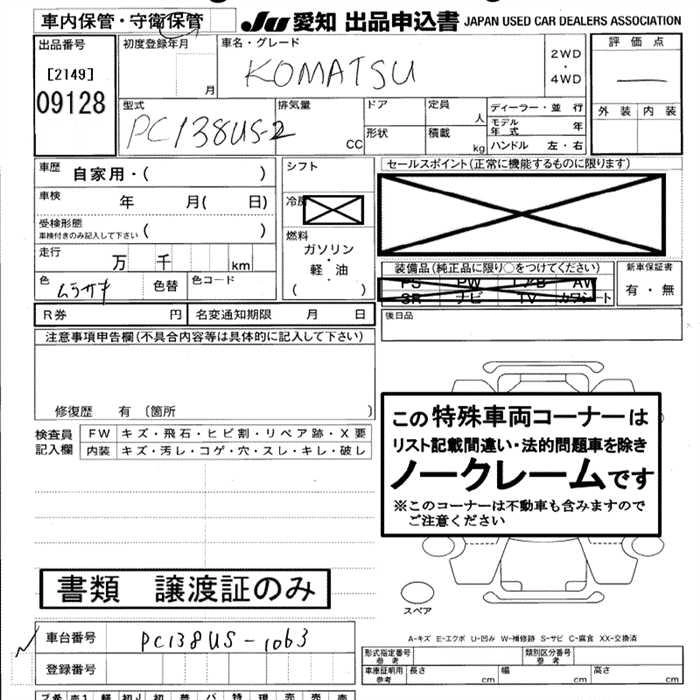 車内保管・守衛保管
JU 愛知 出品申込書 JAPAN USED CAR DEALERS ASSOCIATION
出品番号
[2149]
09128
初度登録年月
月
車名・グレード
KOMATSU
2WD
・
4WD
評価点
外装 内装
型式
PC138US-2
排気量
CC
ドア
形状
定員
人
積載
kg
ディーラー・並 行
モデル
年 式
年
ハンドル 左・右
車歴
自家用・( )
車検
年 月( 日)
受検形態
車検付きのみ記入して下さい ( )
走行
万 千 km
色
ムラサキ
色替
色コード
シフト
冷房
燃料
ガソリン
・
軽・油
( )
セールスポイント(正常に機能するものに限ります)
装備品(純正品に限り○をつけてください)
PS PW エアB AW
SR ナビ TV カワシート
新車保証書
有・無
R券 円
名変通知期限 月 日
後日品
注意事項申告欄(不具合内容等は具体的に記入して下さい)
修復歴 有 〔箇所 〕
検査員
記入欄
FW キズ・飛石・ヒビ割・リペア跡・X要
内装 キズ・汚レ・コゲ・穴・スレ・キレ・破レ
この特殊車両コーナーは
リスト記載間違い・法的問題車を除き
ノークレームです
※このコーナーは不動車も含みますので
ご注意ください
書類 譲渡証のみ
スペア
車台番号
PC138US-1063
登録番号
A-キズ E-エクボ U-凹み W-補修跡 S-サビ C-腐食 XX-交換済
形式指定番号
参 考
類別区分番号
参 考
車庫証明用
参考
長さ
cm
幅
cm
高さ
cm